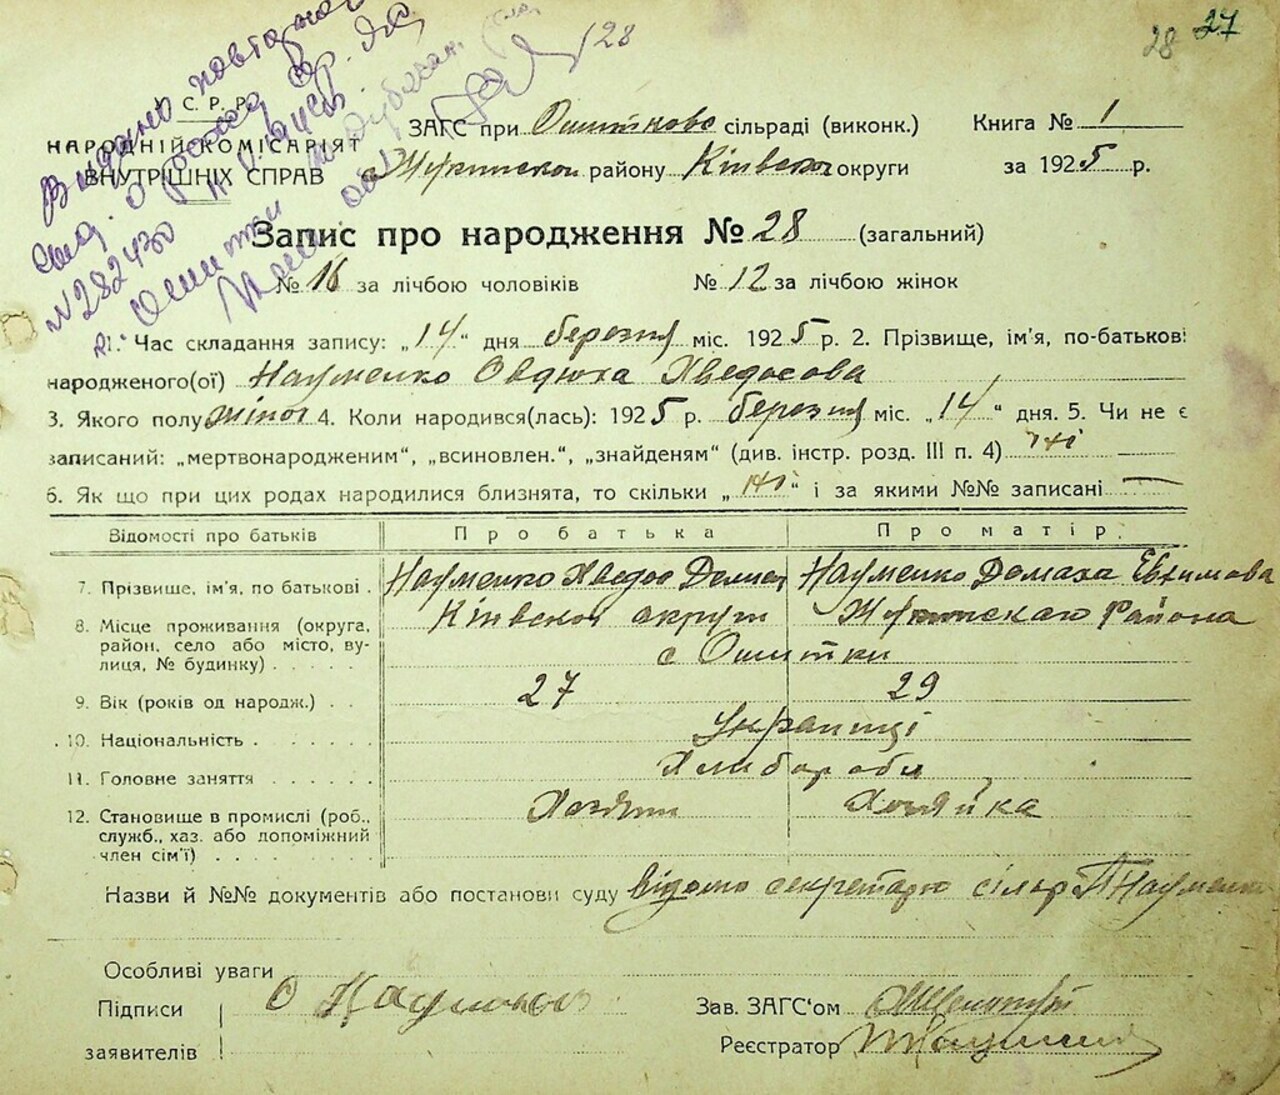 128
28 27
У.С.Р.Р.
НАРОДНІЙ КОМІСАРІЯТ
ВНУТРІШНІХ СПРАВ
Видано повторно
№282430
ЗАГС при Ошитково сільраді (виконк.) Книга № 1
Жукинской району Київской округи за 1925 р.
Запис про народження № 28 (загальний)
№ 16 за лічбою чоловіків № 12 за лічбою жінок
1. Час складання запису: „14“ дня березня міс. 1925 р. 2. Прізвище, ім'я, по-батькові
народженого(ої) Науменко Овдюха Хведосова
3. Якого полу жіноч 4. Коли народився(лась): 1925 р. березня міс. „14“ дня. 5. Чи не є
записаний: „мертвонародженим“, „всиновлен.“, „знайденям“ (див. інстр. розд. III п. 4) ні
6. Як що при цих родах народилися близнята, то скільки „ні“ і за якими №№ записані —
Відомості про батьків Про батька Про матір
7. Прізвище, ім'я, по батькові . Науменко Хведос Демид Науменко Домаха Евхимова
8. Місце проживання (округа, Київской округи Жукинскаго Района
район, село або місто, ву- с Ошитки
лиця, № будинку) . . . . .
9. Вік (років од народж.) . . 27 29
10. Національність . . . . . . Українці
11. Головне заняття . . . . . Хлибороби
12. Становище в промислі (роб., Хозяин Хозяйка
служб., хаз. або допоміжний
член сім'ї) . . . . . . . .
Назви й №№ документів або постанови суду відомо секретарю сільр Науменко
Особливі уваги
Підписи
заявителів
Зав. ЗАГС'ом
Реєстратор